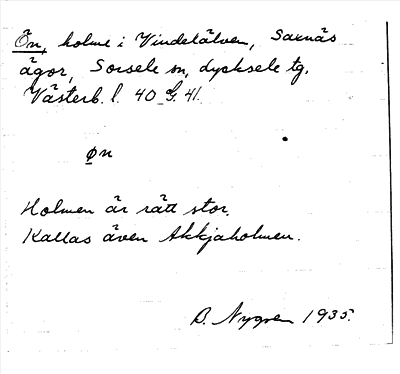 Ön, holme i Vindelälven, Saxnäs
ägor, Sorsele sn, dycksele tg.
Västerb. l. 40 G. 41.
øn
Holmen är rätt stor.
Kallas även Akkjaholmen.
B. Nygren 1935.